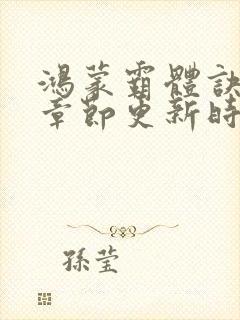 鴻蒙霸體訣
章節更新時
孫瑩